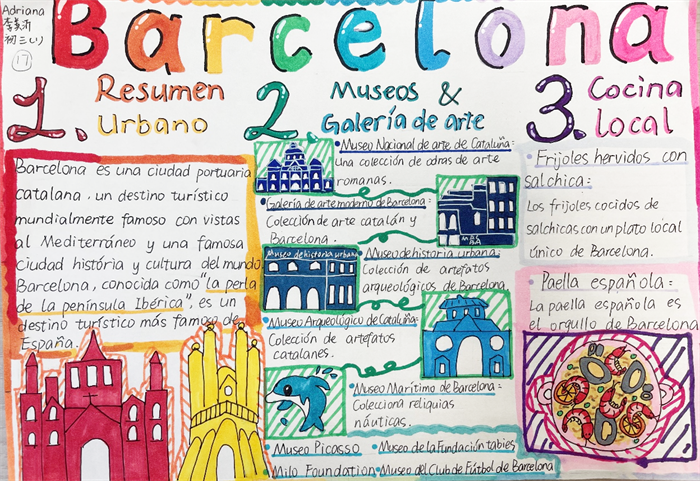 Adriana
李美沂
初三(1)
17
Barcelona
1. Resumen
Urbano
Barcelona es una ciudad portuaria
catalana, un destino turístico
mundialmente famoso con vistas
al Mediterráneo y una famosa
Ciudad história y cultura del mundo
Barcelona, conocida como "la perla
de la península Ibérica", es un
destino turístico más famoso de
España.
2. Museos &
Galería de arte
• Museo Nacional de arte de Cataluña:
una colección de odras de arte
romanas.
• Galería de arte moderno de Barcelona:
Colección de arte catalán y
Barcelona.
MBA
Museo de historia urbana
• Museo de historia urbana:
Colección de artefatos
arqueológicos de Barcelona
• Museo Arqueológico de Cataluña:
Colección de artefatos
catalanes.
• Museo Marítimo de Barcelona:
Colecciona reliquias
náuticas.
• Museo Picasso • Museo de la Fundación tabies
• Milo Foundation • Museo del Club de Fútbol de Barcelona
3. Cocina
local
• Frijoles hervidos con
salchica:
Los frijoles cocidos de
salchicas con un plato local
único de Barcelona.
• Paella española:
La paella española es
el orgullo de Barcelona